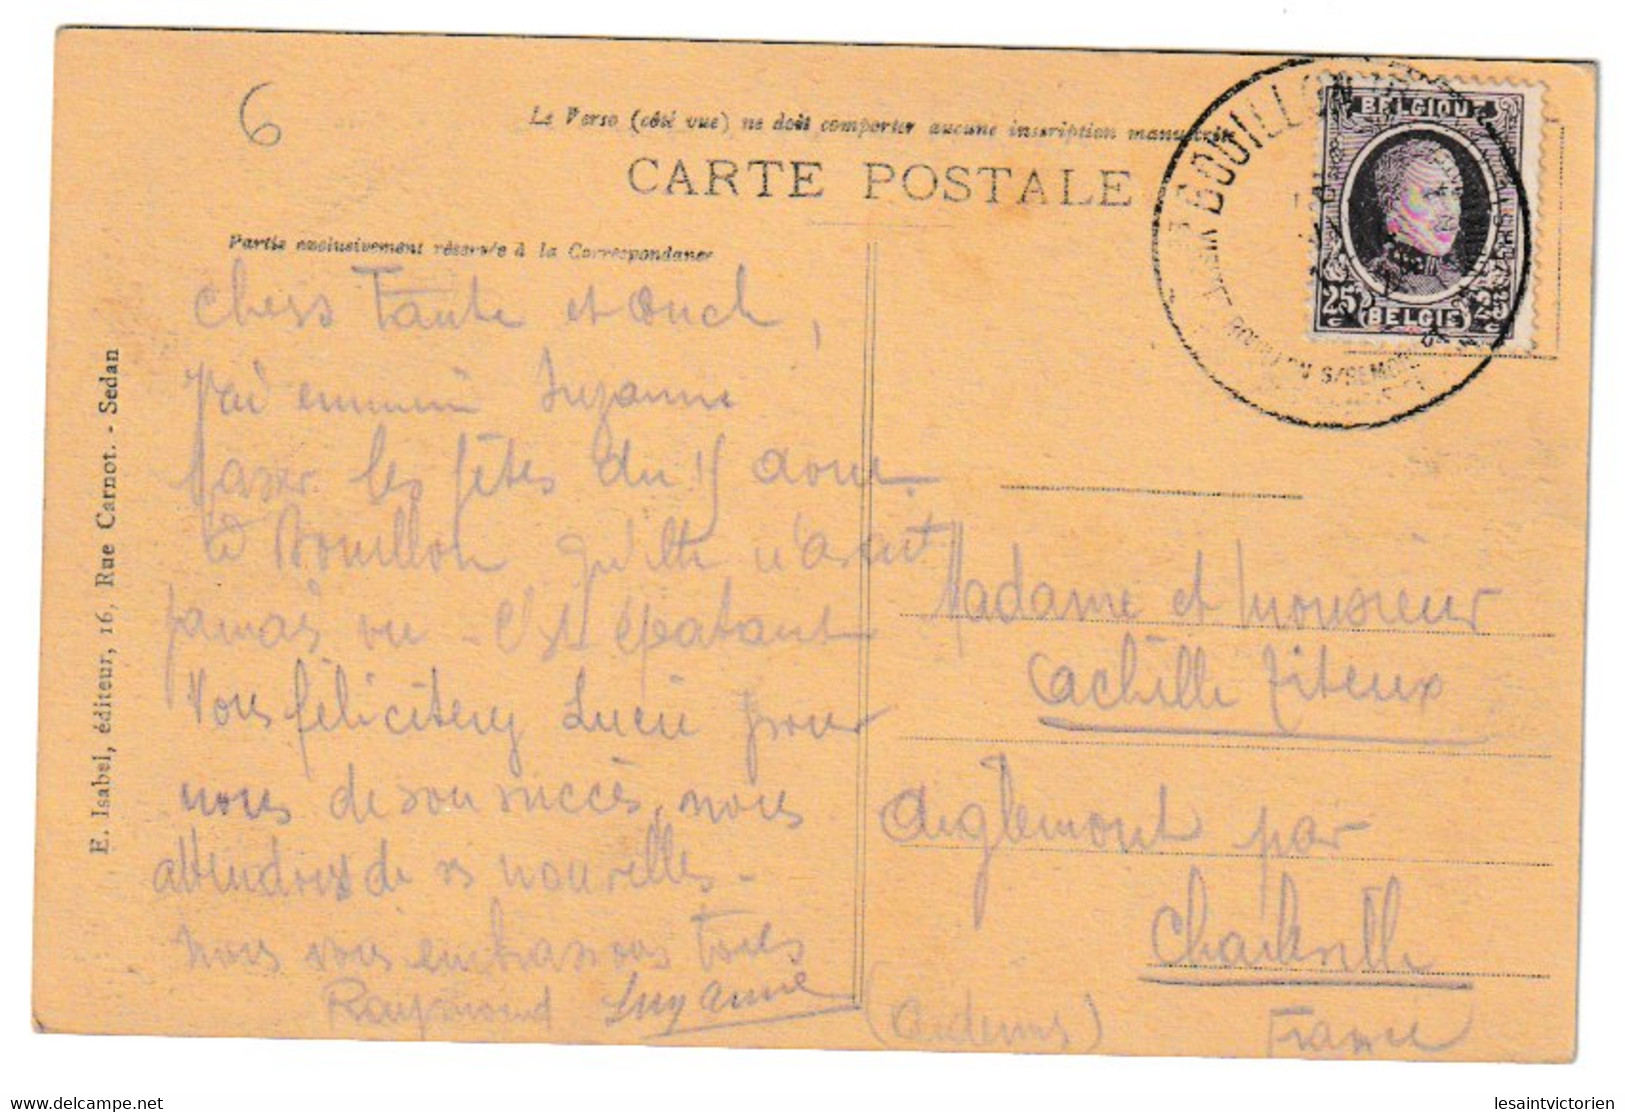 6
Le Verso (côté vue) ne doit comporter aucune inscription manuscrite
CARTE POSTALE
Partie exclusivement réservée à la Correspondance
E. Isabel, éditeur, 16, Rue Carnot. - Sedan
BOUILLON
BOUILLON S/SEMOIS
BELGIQUE
25 c
25 c
BELGIE
Chers Tante et Oncle,
J'ai emmené Suzanne
passer les fêtes du 15 aout
à Bouillon qu'elle n'avait
jamais vu - C'est épatant
Vous féliciterez Lucie pour
nous de son succès, nous
attendons de ses nouvelles -
Nous vous embrassons tous
Raymond Suzanne
Madame et Monsieur
Achille Titeux
Aiglemont par
Charleville
(Ardennes) France
delcampe.net
lesaintvictorien